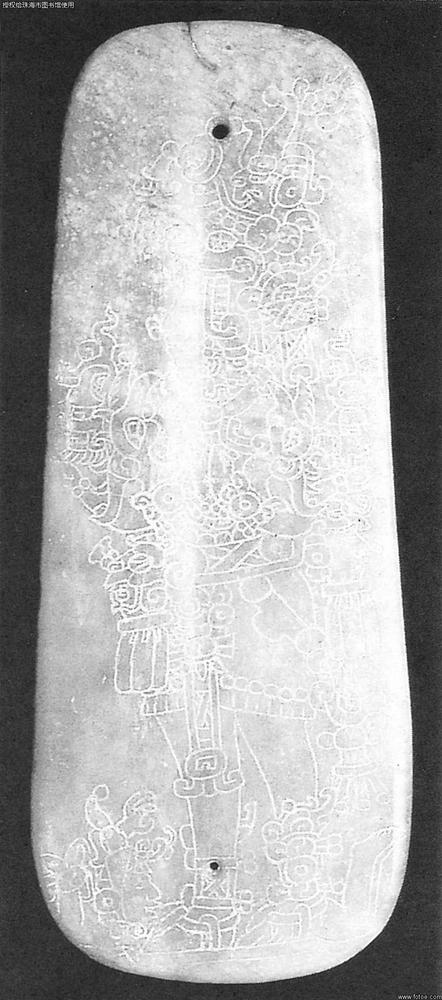 授权给珠海市图书馆使用
www.fotoe.com